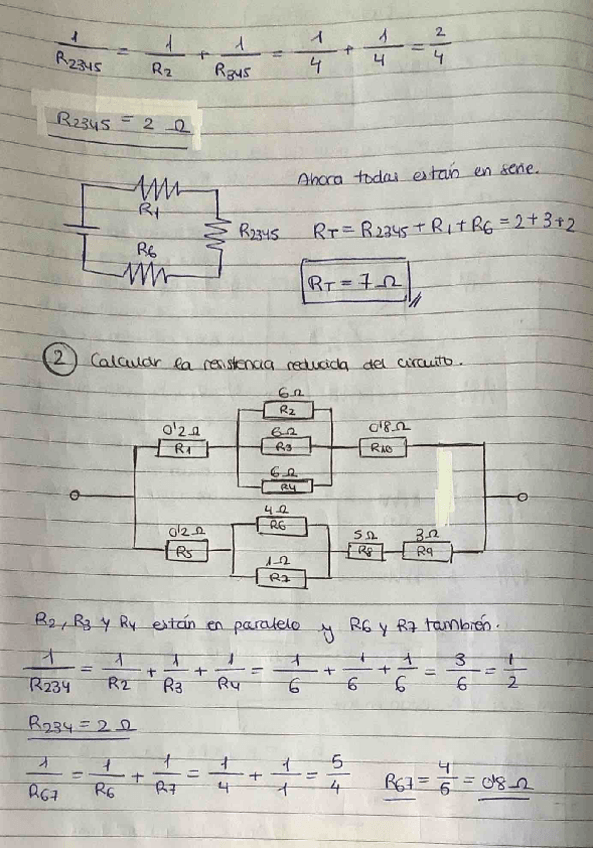 1/R2345 = 1/R2 + 1/R345 = 1/4 + 1/4 = 2/4
R2345 = 2 Ω
Ahora todas están en serie.
R1
R2345
RT = R2345 + R1 + R6 = 2+3+2
R6
RT = 7 Ω
2 Calcular la resistencia reducida del circuito.
6Ω
R2
0'2Ω
R1
6Ω
R3
0'8Ω
R10
6Ω
R4
4Ω
R6
0'2Ω
R5
5Ω
R8
3Ω
R9
1Ω
R7
R2, R3 y R4 están en paralelo y R6 y R7 también.
1/R234 = 1/R2 + 1/R3 + 1/R4 = 1/6 + 1/6 + 1/6 = 3/6 = 1/2
R234 = 2 Ω
1/R67 = 1/R6 + 1/R7 = 1/4 + 1/1 = 5/4 R67 = 4/5 = 0'8 Ω